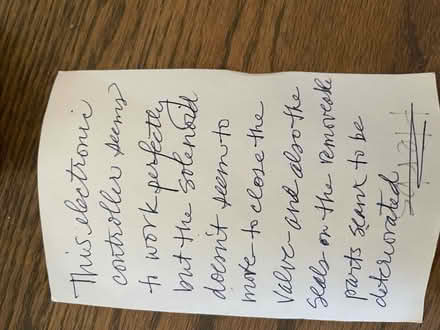 This electronic
controller seems
to work perfectly
but the solenoid
doesn't seem to
move to close the
valve - and also the
seals on the removeable
parts seam to be
deteriorated